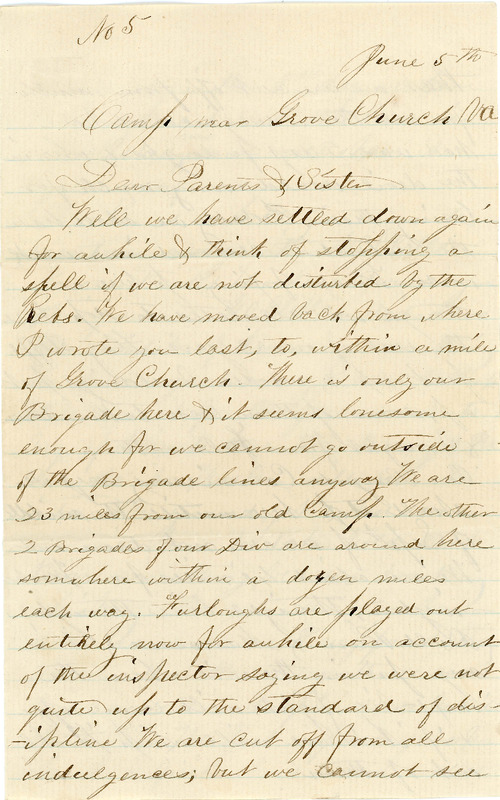 No 5
June 5th
Camp near Grove Church Va
Dear Parents & Sister
Well we have settled down again
for awhile & think of stopping a
spell if we are not disturbed by the
Rebs. We have moved back from where
I wrote you last, to, within a mile
of Grove Church. There is only our
Brigade here & it seems lonesome
enough for we cannot go outside
of the Brigade lines anyway We are
23 miles from our old Camp. The other
2 Brigades of our Div are around here
somwhere within a dozen miles
each way. Furloughs are played out
entirely now for awhile on account
of the inspector saying we were not
quite up to the standard of dis-
-ipline We are cut off from all
indulgences; but we cannot see